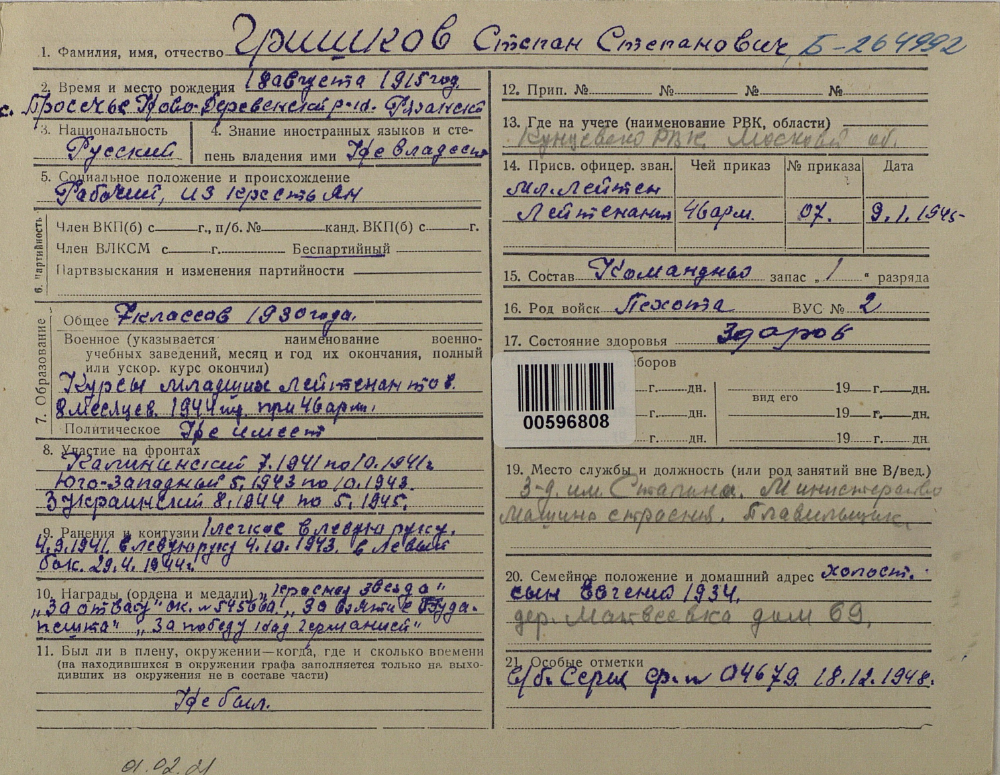 1. Фамилия, имя, отчество Гришков Степан Степанович, Б-264992
2. Время и место рождения 18 августа 1915 год.
с. Просечье Ново-Деревенский р-н. Рязанск
3. Национальность Русский
4. Знание иностранных языков и степень владения ими Не владеет
5. Социальное положение и происхождение
Рабочий, из крестьян
6. Партийность
Член ВКП(б) с г., п/б. № канд. ВКП(б) с г.
Член ВЛКСМ с г. Беспартийный
Партвзыскания и изменения партийности
7. Образование
Общее 7 классов 1930 года.
Военное (указывается наименование военно-
учебных заведений, месяц и год их окончания, полный
или ускор. курс окончил)
Курсы младших лейтенантов.
8 месяцев. 1944 при 46 арм.
Политическое Не имеет
8. Участие на фронтах
Калининский 7.1941 по 10.1941г
Юго-Западный 5.1943 по 10.1943.
3 Украинский 8.1944 по 5.1945.
9. Ранения и контузии 1 легкое в левую руку.
4.9.1941. в левую руку 4.10.1943. в левый
бок. 29.4.1944г.
10. Награды (ордена и медали) „Красная звезда"
„За отвагу" „За взятие Буда-
пешта" „За победу над Германией"
11. Был ли в плену, окружении—когда, где и сколько времени
(на находившихся в окружении графа заполняется только на выхо-
дивших из окружения не в составе части)
Не был.
01.02.21
12. Прип. № № № №
13. Где на учете (наименование РВК, области)
Кунцевско РВК Москов об.
14. Присв. офицер. зван. Чей приказ № приказа Дата
мл. Лейтен
Лейтенант 46 арм. 07. 9.1.1945
15. Состав Командны запас „1" разряда
16. Род войск Пехота ВУС № 2
17. Состояние здоровья Здоров
сборов
г. дн. вид его 19 г. дн.
г. дн. 19 г. дн.
г. дн. 19 г. дн.
00596808
19. Место службы и должность (или род занятий вне В/вед.)
З-д. им Сталина. Министерство
Машиностроения. Плавильщик
20. Семейное положение и домашний адрес холост.
сын Евгений 1934.
дер. Матвеевка дом 69.
21. Особые отметки
в/б. Серия 04679. 18.12.1948.